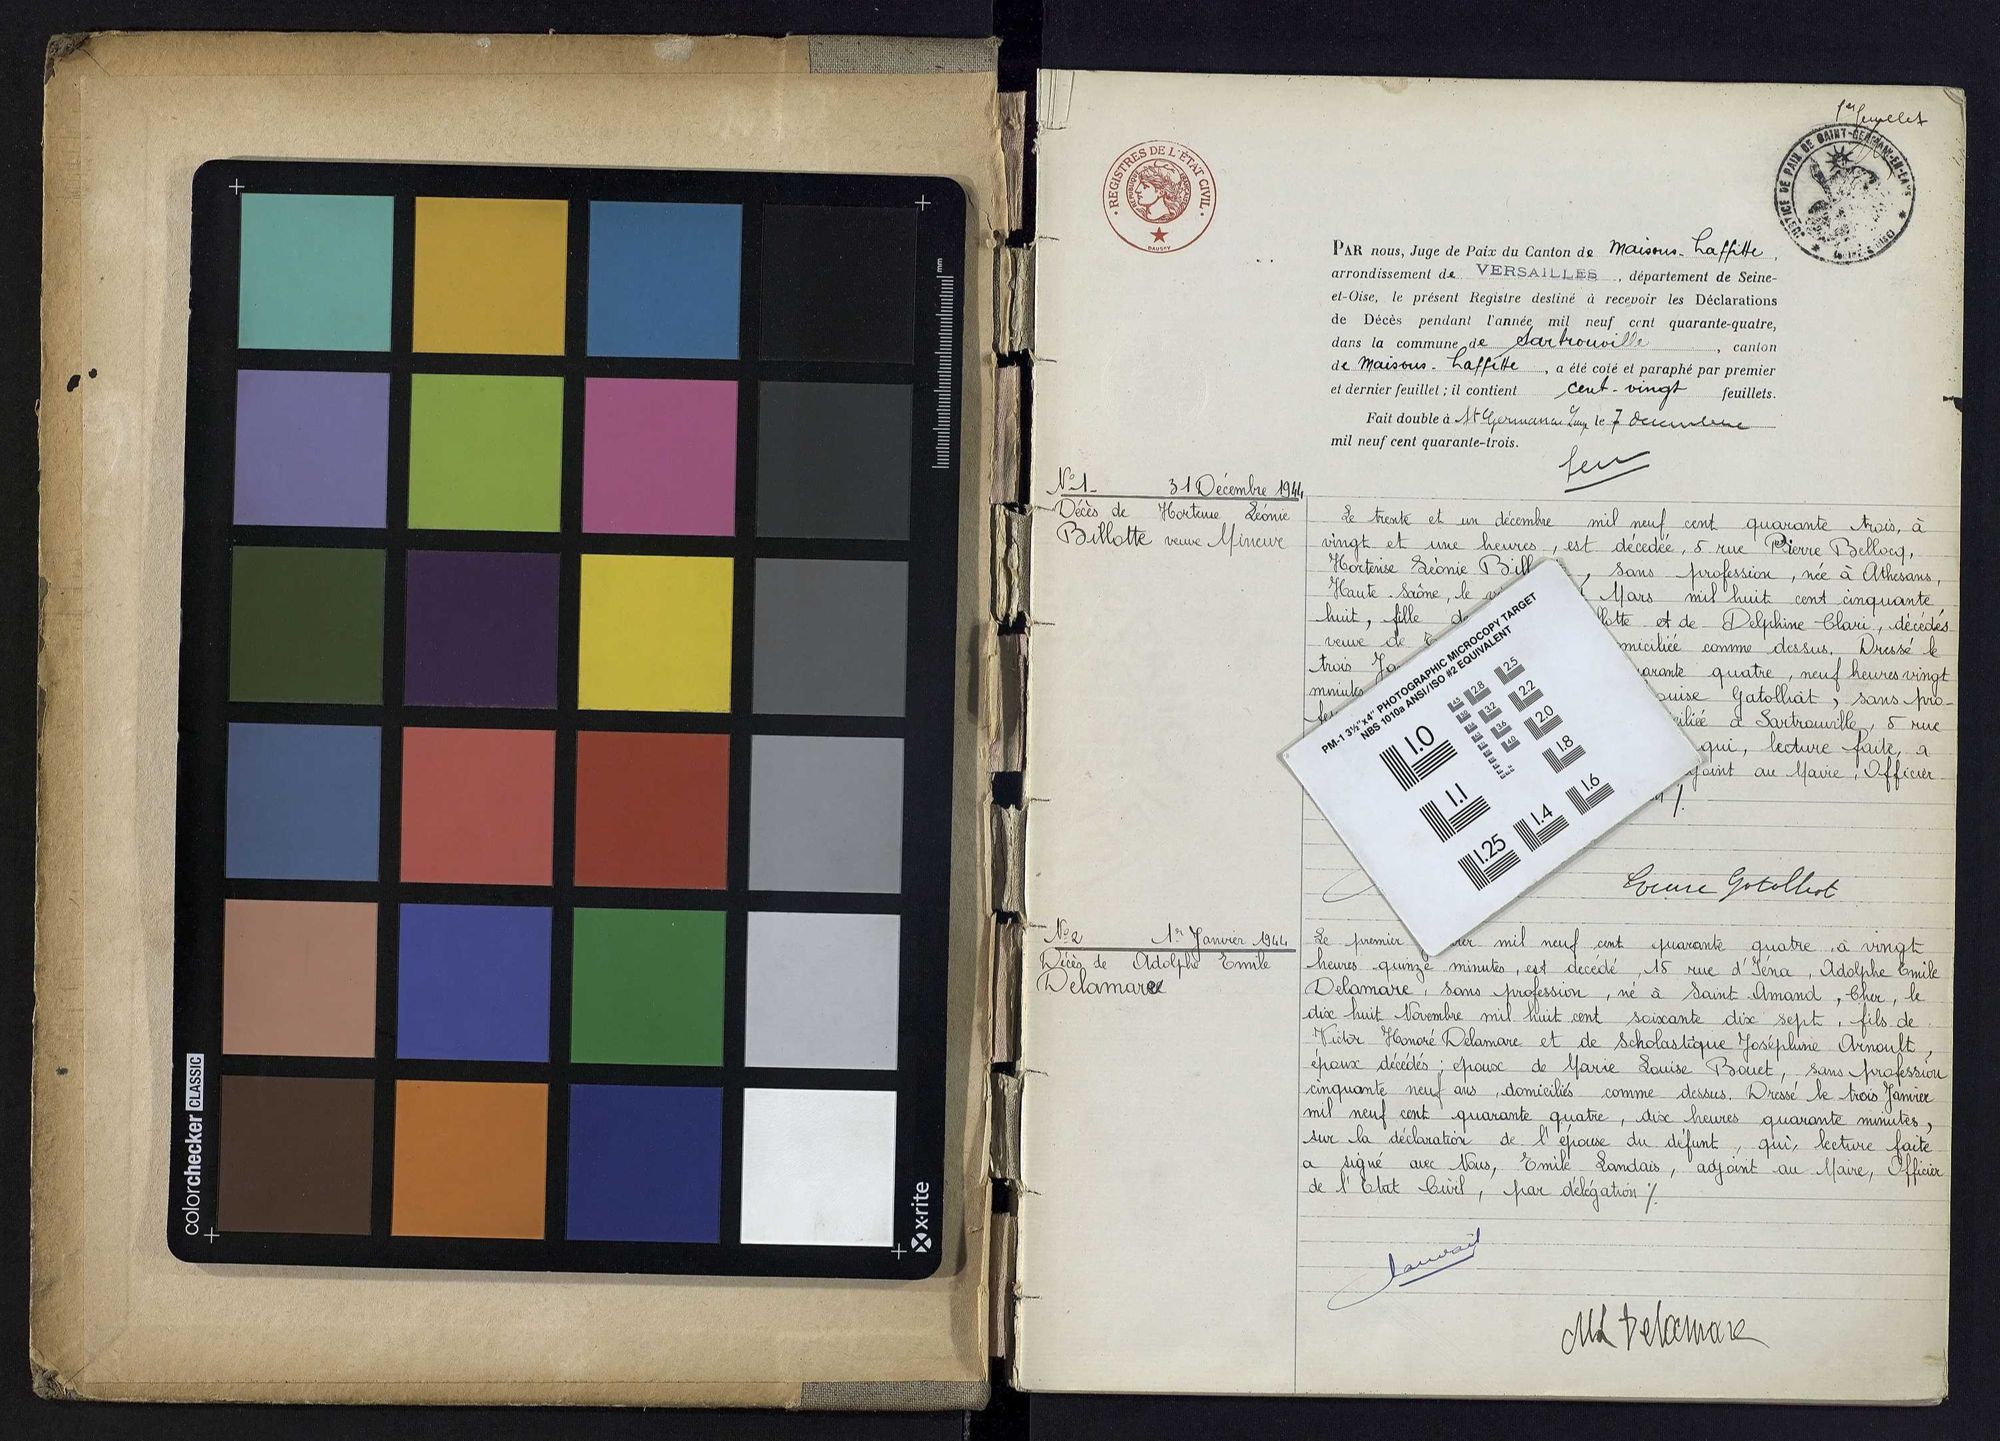 colorchecker CLASSIC
x-rite
mm
1er feuillet
REGISTRES DE L'ÉTAT CIVIL
JUSTICE DE PAIX DE SAINT-GERMAIN-EN-LAYE
PAR nous, Juge de Paix du Canton de Maisons-Laffitte,
arrondissement de VERSAILLES, département de Seine-
et-Oise, le présent Registre destiné à recevoir les Déclarations
de Décès pendant l'année mil neuf cent quarante-quatre,
dans la commune de Sartrouville, canton
de Maisons-Laffitte, a été coté et paraphé par premier
et dernier feuillet ; il contient cent-vingt feuillets.
Fait double à St Germain en Laye le 7 décembre
mil neuf cent quarante-trois.
N° 1 - 31 Décembre 1944
Décès de Hortense Léonie
Billotte veuve Mineur
Le trente et un décembre mil neuf cent quarante trois, à
vingt et une heures, est décédée, 5 rue Pierre Bellocq,
Hortense Léonie Bill , sans profession, née à Athesans,
Haute-Saône, le Mars mil huit cent cinquante
huit, fille de lotte et de Delphine Clari, décédés
veuve de miciliée comme dessus. Dressé le
trois Ja arante quatre, neuf heures vingt
minutes ouise Gatolliat, sans pro-
iliée à Sartrouville, 5 rue
qui, lecture faite, a
joint au Maire, Officier
n /.
PM-1 3½"x4" PHOTOGRAPHIC MICROCOPY TARGET
NBS 1010a ANSI/ISO #2 EQUIVALENT
1.0
1.1
1.25
1.4
1.6
1.8
2.0
2.2
2.5
2.8
3.2
3.6
4.0
Louise Gatolliat
N° 2 1er Janvier 1944
Décès de Adolphe Emile
Delamare
Le premier vier mil neuf cent quarante quatre, à vingt
heures quinze minutes, est décédé, 15 rue d'Iéna, Adolphe Emile
Delamare, sans profession, né à Saint Amand, Cher, le
dix huit Novembre mil huit cent soixante dix sept, fils de
Victor Honoré Delamare et de Scholastique Joséphine Arnoult,
époux décédés ; époux de Marie Louise Bouet, sans profession
cinquante neuf ans, domiciliés comme dessus. Dressé le trois Janvier
mil neuf cent quarante quatre, dix heures quarante minutes,
sur la déclaration de l'épouse du défunt, qui, lecture faite
a signé avec Nous, Emile Landais, adjoint au Maire, Officier
de l'Etat Civil, par délégation /.
ML Delamare